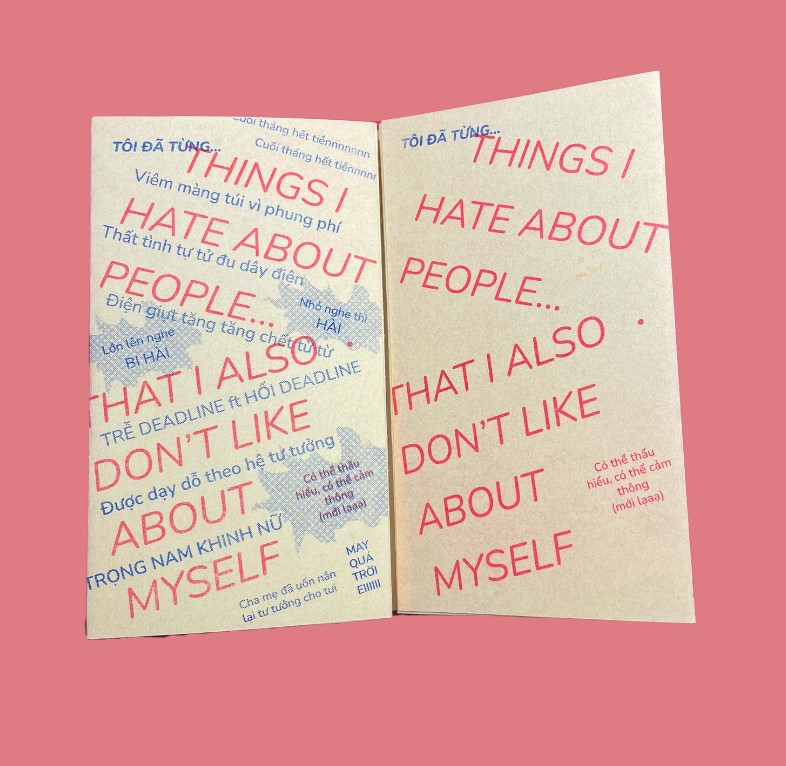 Cuối tháng hết tiềnnnnnnn
TÔI ĐÃ TỪNG...
Cuối tháng hết tiềnnnnr
THINGS I
Viêm màng túi vì phung phí
HATE ABOUT
Thất tình tự tử đu dây điện
PEOPLE...
Điện giựt tăng tăng chết từ từ
Nhỏ nghe thì
HÀI
Lớn lên nghe
BI HÀI
THAT I ALSO
TRỄ DEADLINE ft HỐI DEADLINE
DON'T LIKE
Được dạy dỗ theo hệ tư tưởng
Có thể thấu
hiểu, có thể cảm
thông
(mới lạạạ)
ABOUT
TRỌNG NAM KHINH NỮ
MYSELF
Cha mẹ đã uốn nắn
lại tư tưởng cho tui
MAY
QUÁ
TRỜI
EIIIIII
TÔI ĐÃ TỪNG...
THINGS I
HATE ABOUT
PEOPLE...
THAT I ALSO
DON'T LIKE
Có thể thấu
hiểu, có thể cảm
thông
(mới lạạạ)
ABOUT
MYSELF